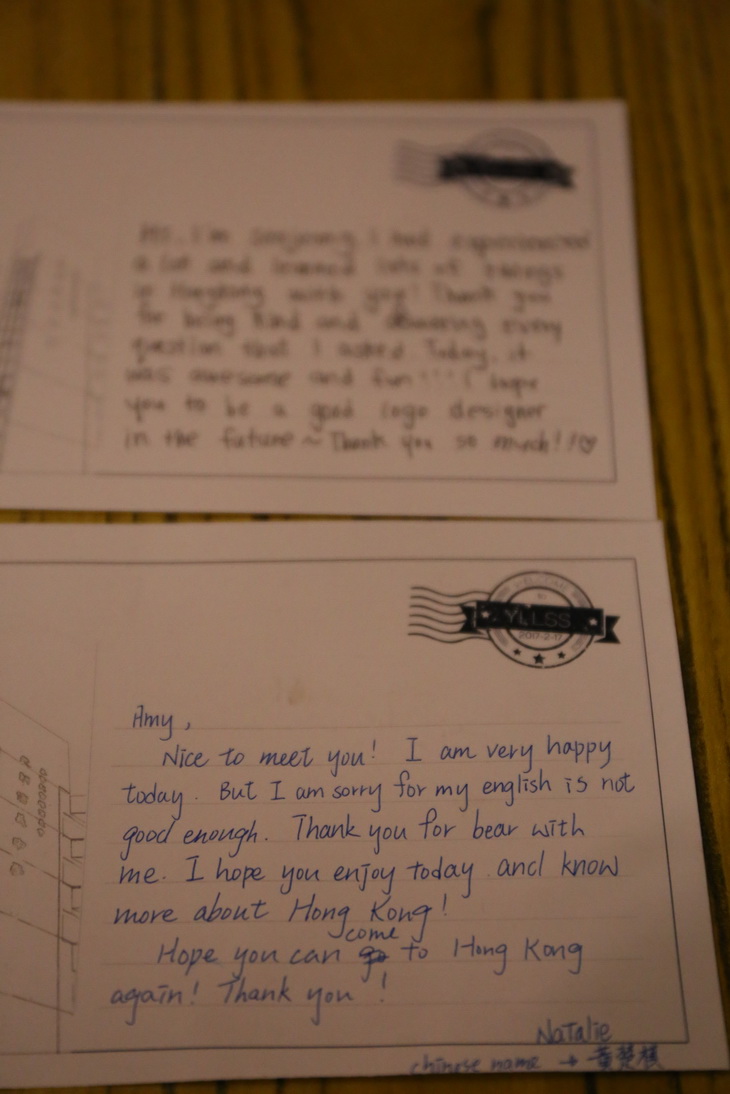 Hi, I'm I had experienced
a lot and learned lots of things
in Hongkong with you! Thank you
for being kind and answering every
question that I asked. Today, it
was awesome and fun!!! I hope
you to be a good logo designer
in the future~ Thank you so much!!♡
WELCOME
YLLSS
2017-2-17
Amy,
Nice to meet you! I am very happy
today. But I am sorry for my english is not
good enough. Thank you for bear with
me. I hope you enjoy today and know
more about Hong Kong!
come
Hope you can go to Hong Kong
again! Thank you!
Natalie
chinese name → 葉楚